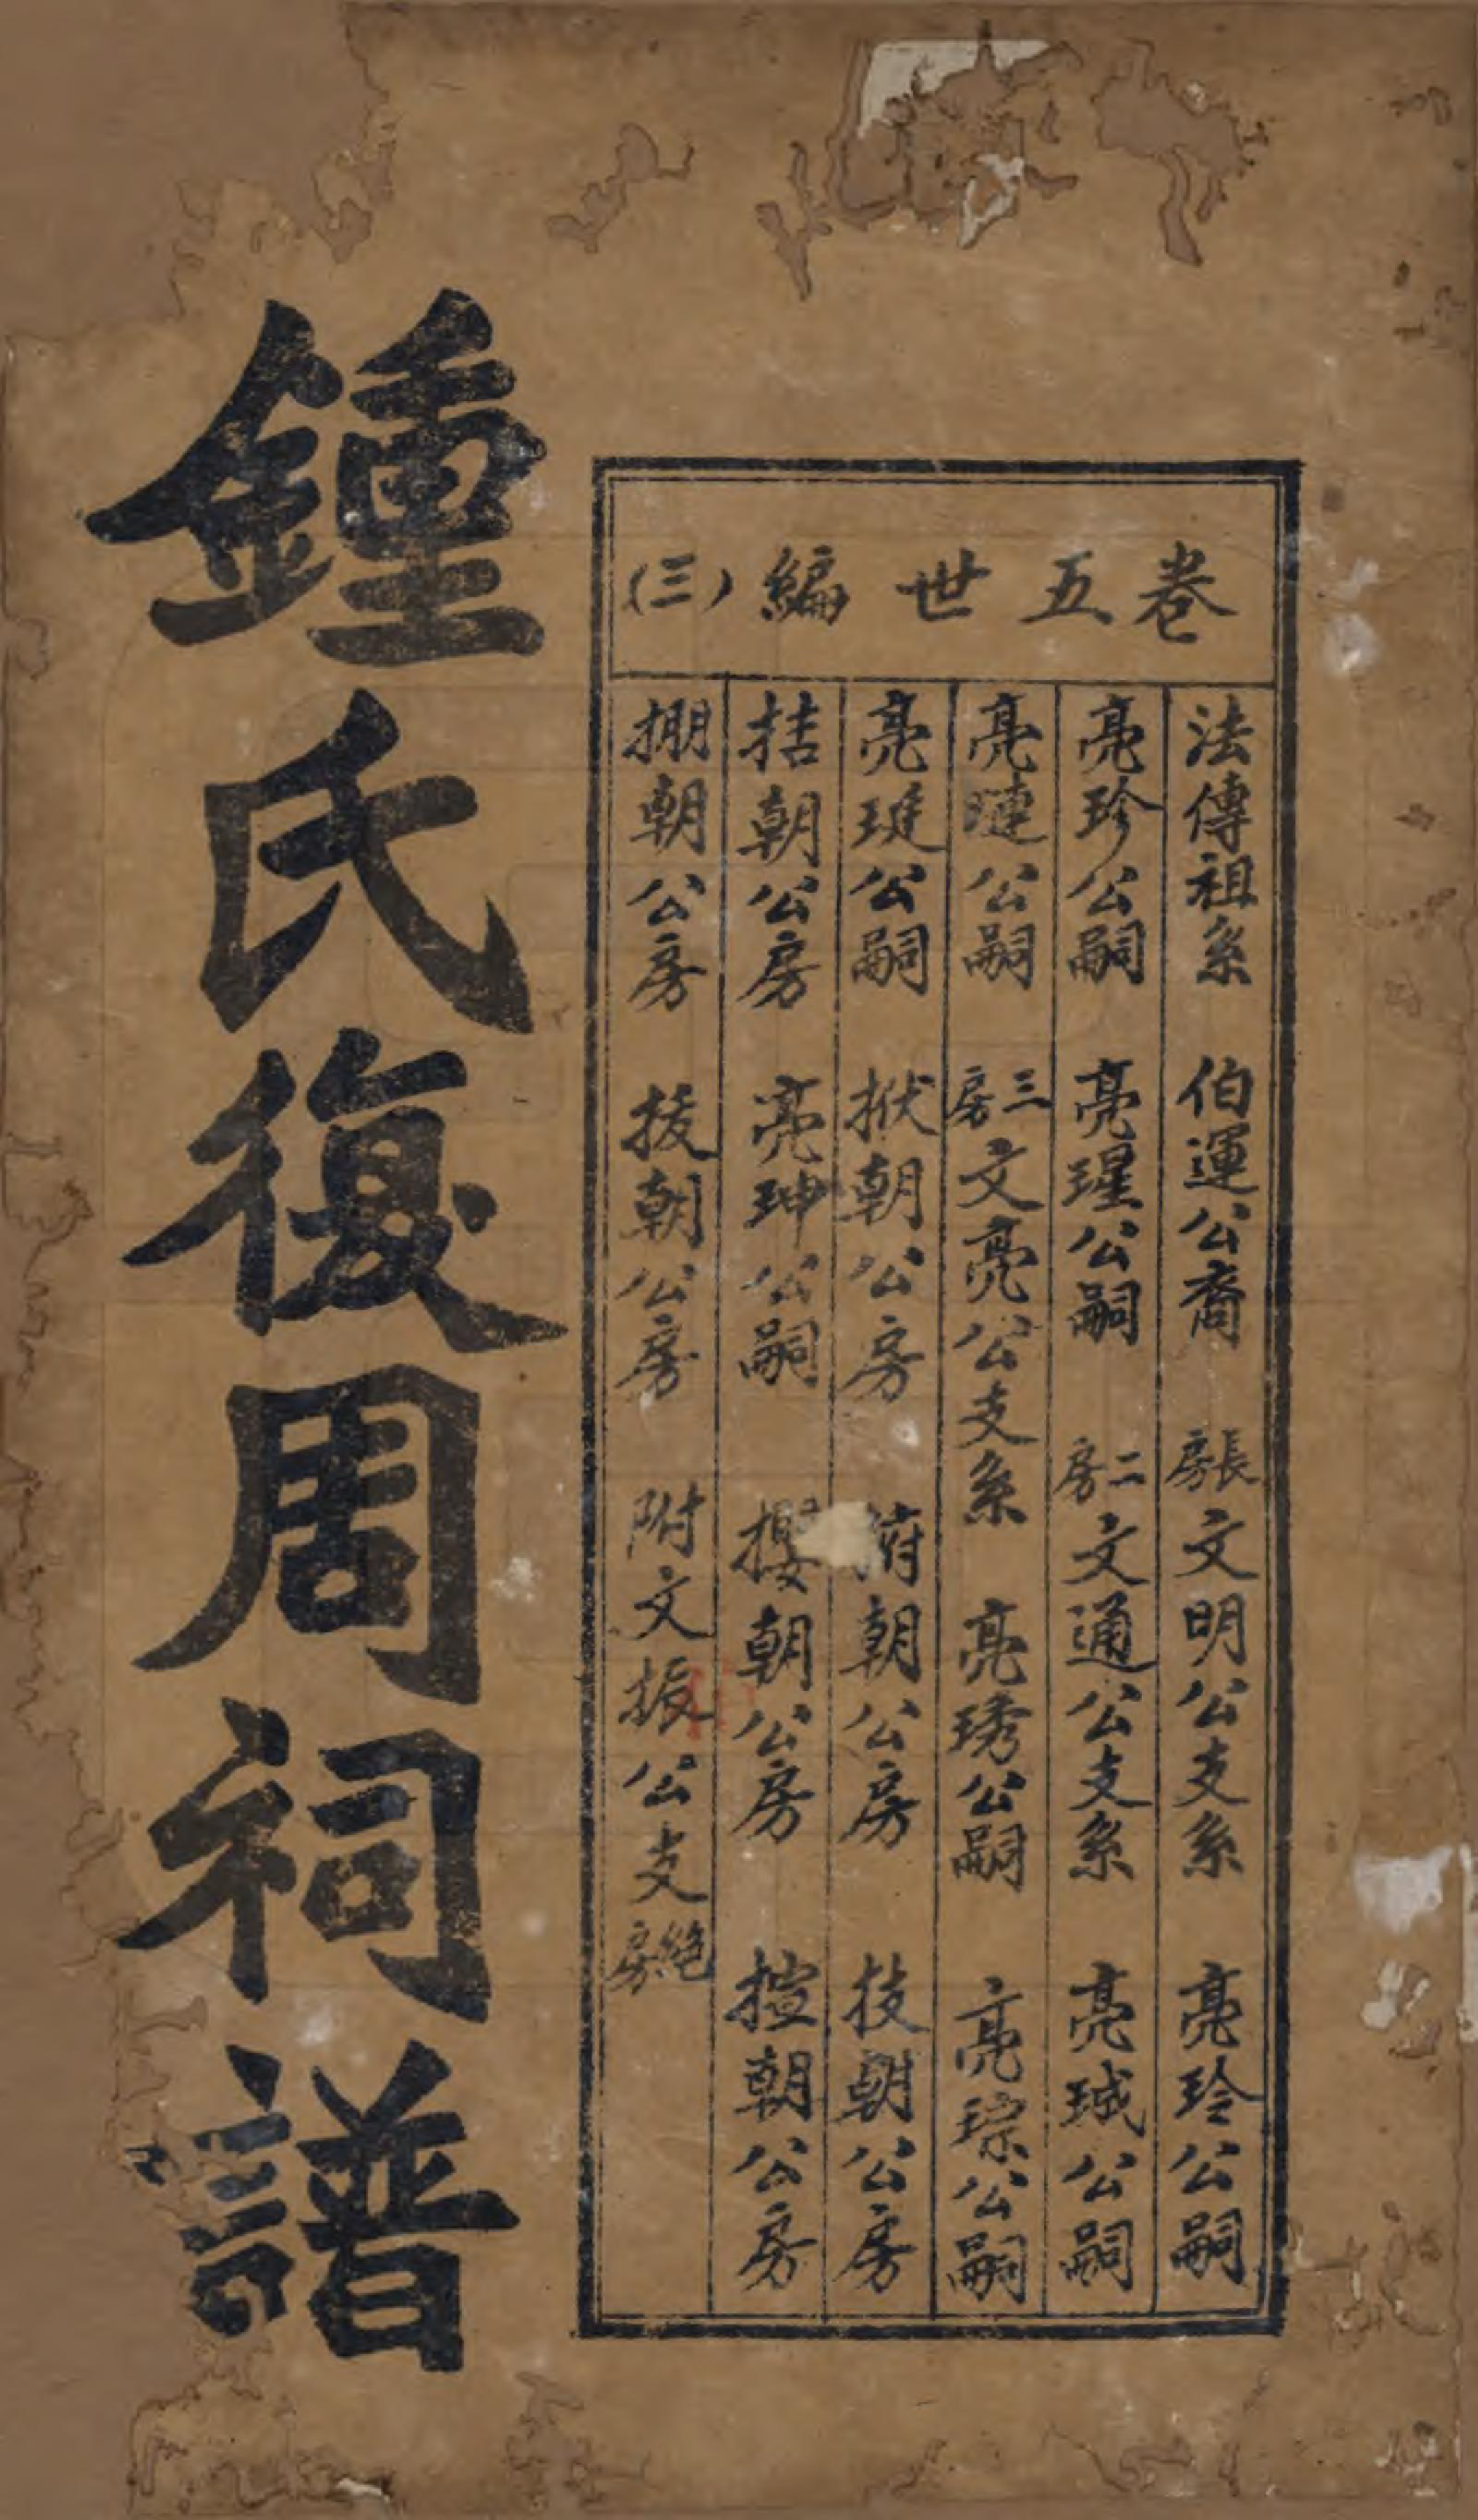 卷五世編(三)
法傳祖系 伯運公裔 長房文明公支系 亮玲公嗣
亮珍公嗣 亮瑆公嗣 二房文通公支系 亮珹公嗣
亮璉公嗣 三房文亮公支系 亮琇公嗣 亮琮公嗣
亮公嗣 朝公房 朝公房 技朝公房
括朝公房 亮珅公嗣 攖朝公房 揎朝公房
掤朝公房 拔朝公房 附文振公支絕房
鍾氏復周祠譜